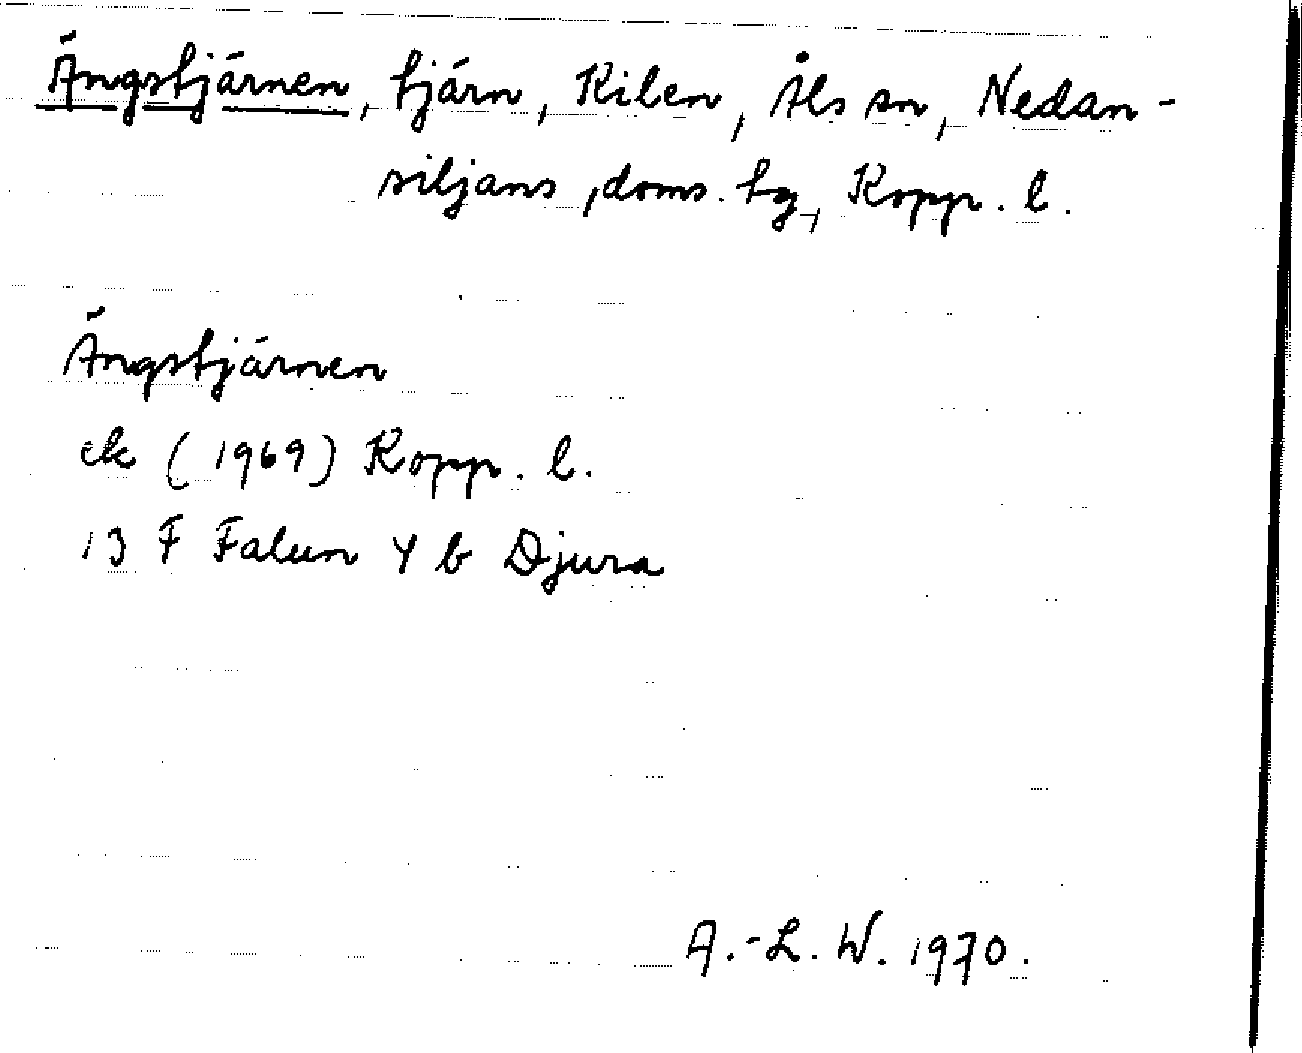 Ängstjärnen, tjärn, Kilen, Åls sn, Nedan-
siljans, doms. tg, Kopp. l.
Ängstjärnen
ek (1969) Kopp. l.
13 F Falun 4 b Djura
A.-L. W. 1970.